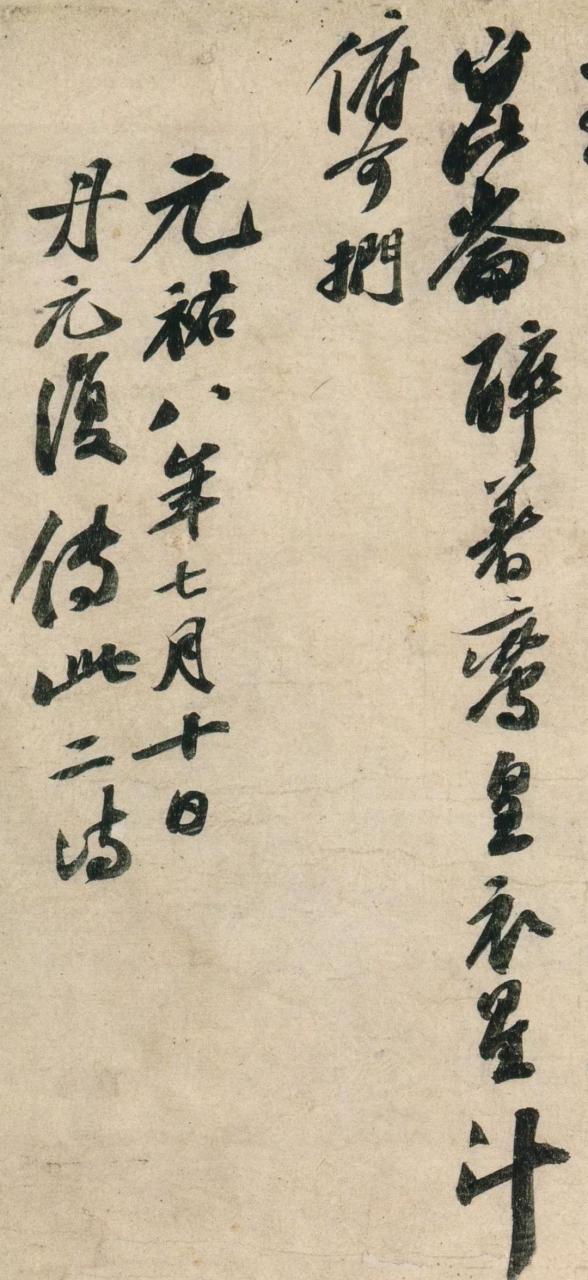 崑崙醉著鸞皇衣星斗
俯可捫
元祐八年七月十日
丹元復傳此二詩